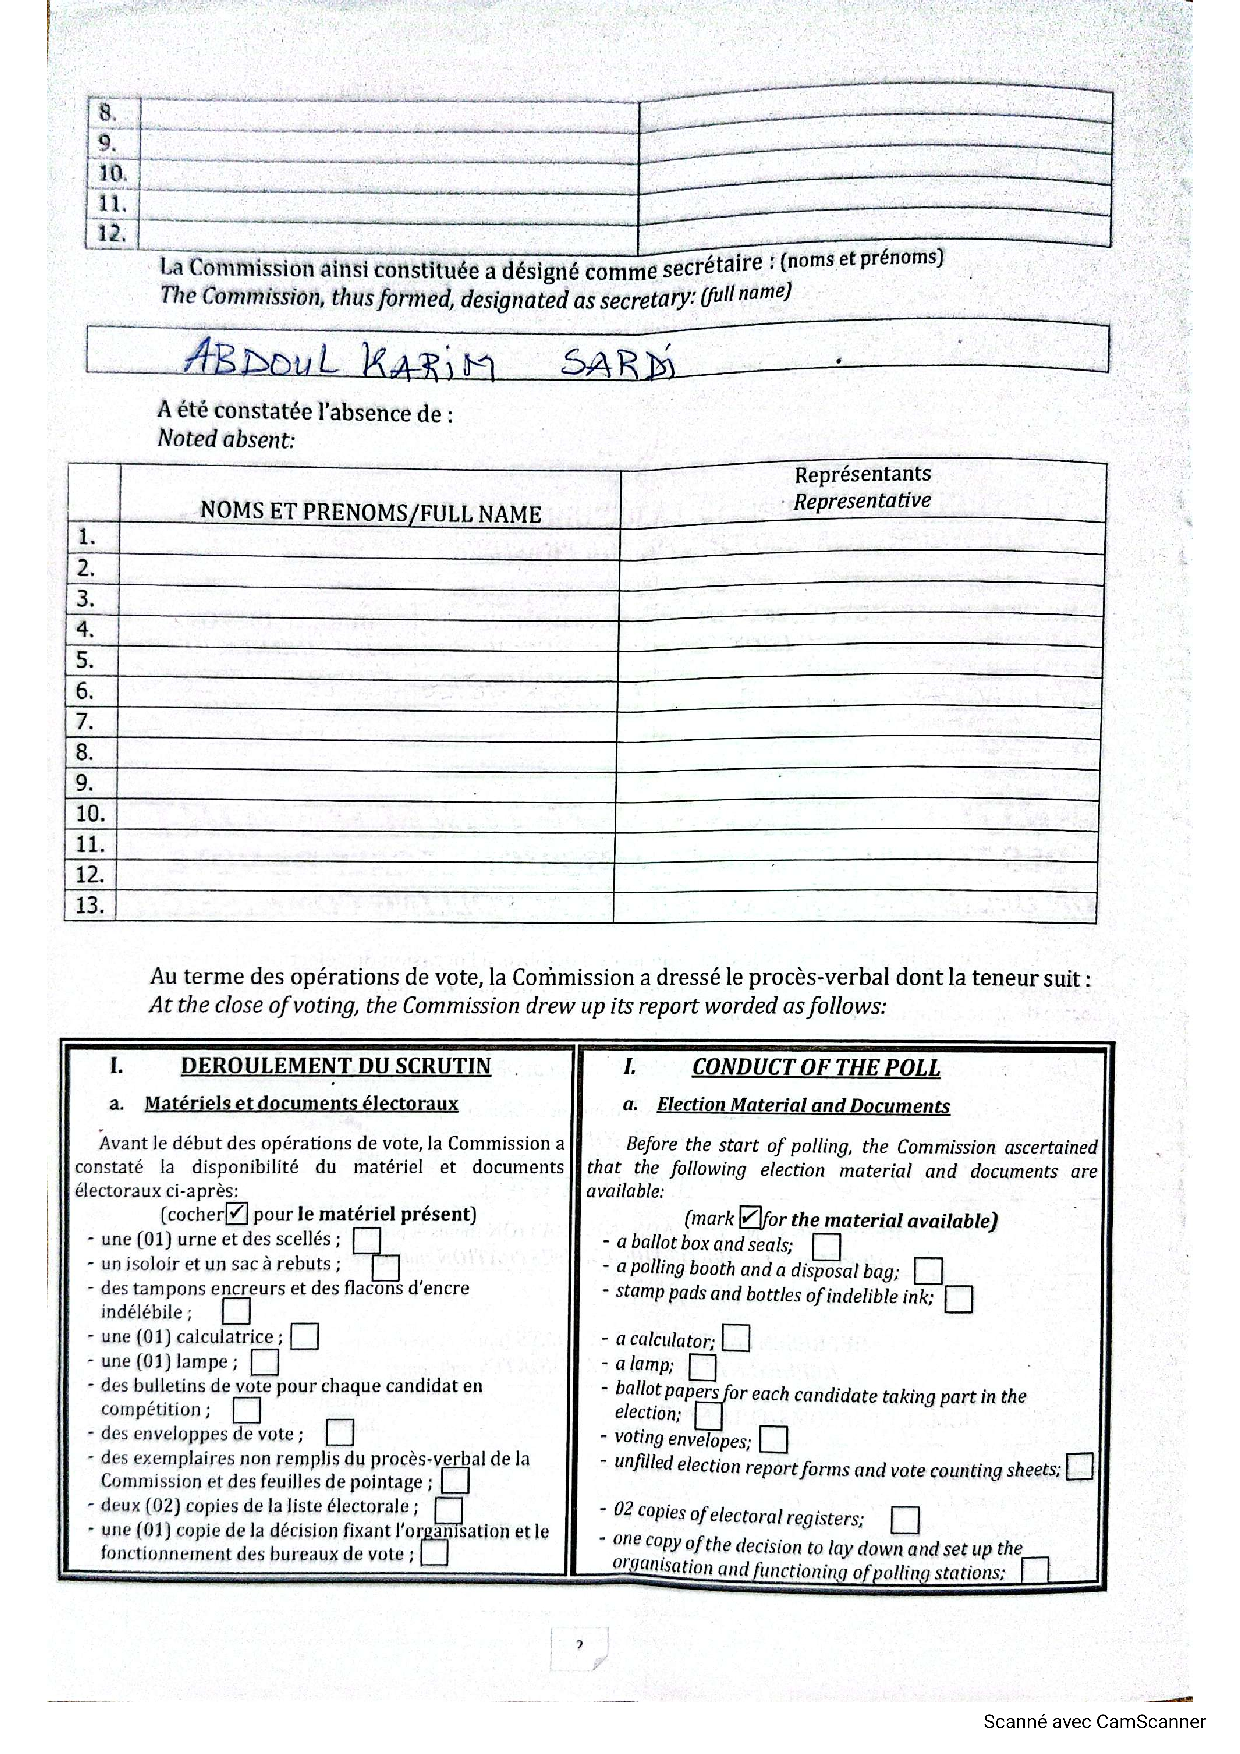 8.
9.
10.
11.
12.
La Commission ainsi constituée a désigné comme secrétaire : (noms et prénoms)
The Commission, thus formed, designated as secretary: (full name)
ABDOUL KARIM SARDI
A été constatée l'absence de :
Noted absent:
NOMS ET PRENOMS/FULL NAME
Représentants
Representative
1.
2.
3.
4.
5.
6.
7.
8.
9.
10.
11.
12.
13.
Au terme des opérations de vote, la Commission a dressé le procès-verbal dont la teneur suit :
At the close of voting, the Commission drew up its report worded as follows:
I. DEROULEMENT DU SCRUTIN
a. Matériels et documents électoraux
Avant le début des opérations de vote, la Commission a
constaté la disponibilité du matériel et documents
électoraux ci-après:
(cocher ☑ pour le matériel présent)
- une (01) urne et des scellés ; ☐
- un isoloir et un sac à rebuts ; ☐
- des tampons encreurs et des flacons d'encre
indélébile ; ☐
- une (01) calculatrice ; ☐
- une (01) lampe ; ☐
- des bulletins de vote pour chaque candidat en
compétition ; ☐
- des enveloppes de vote ; ☐
- des exemplaires non remplis du procès-verbal de la
Commission et des feuilles de pointage ; ☐
- deux (02) copies de la liste électorale ; ☐
- une (01) copie de la décision fixant l'organisation et le
fonctionnement des bureaux de vote ; ☐
I. CONDUCT OF THE POLL
a. Election Material and Documents
Before the start of polling, the Commission ascertained
that the following election material and documents are
available:
(mark ☑ for the material available)
- a ballot box and seals; ☐
- a polling booth and a disposal bag; ☐
- stamp pads and bottles of indelible ink; ☐
- a calculator; ☐
- a lamp; ☐
- ballot papers for each candidate taking part in the
election; ☐
- voting envelopes; ☐
- unfilled election report forms and vote counting sheets; ☐
- 02 copies of electoral registers; ☐
- one copy of the decision to lay down and set up the
organisation and functioning of polling stations; ☐
2
Scanné avec CamScanner